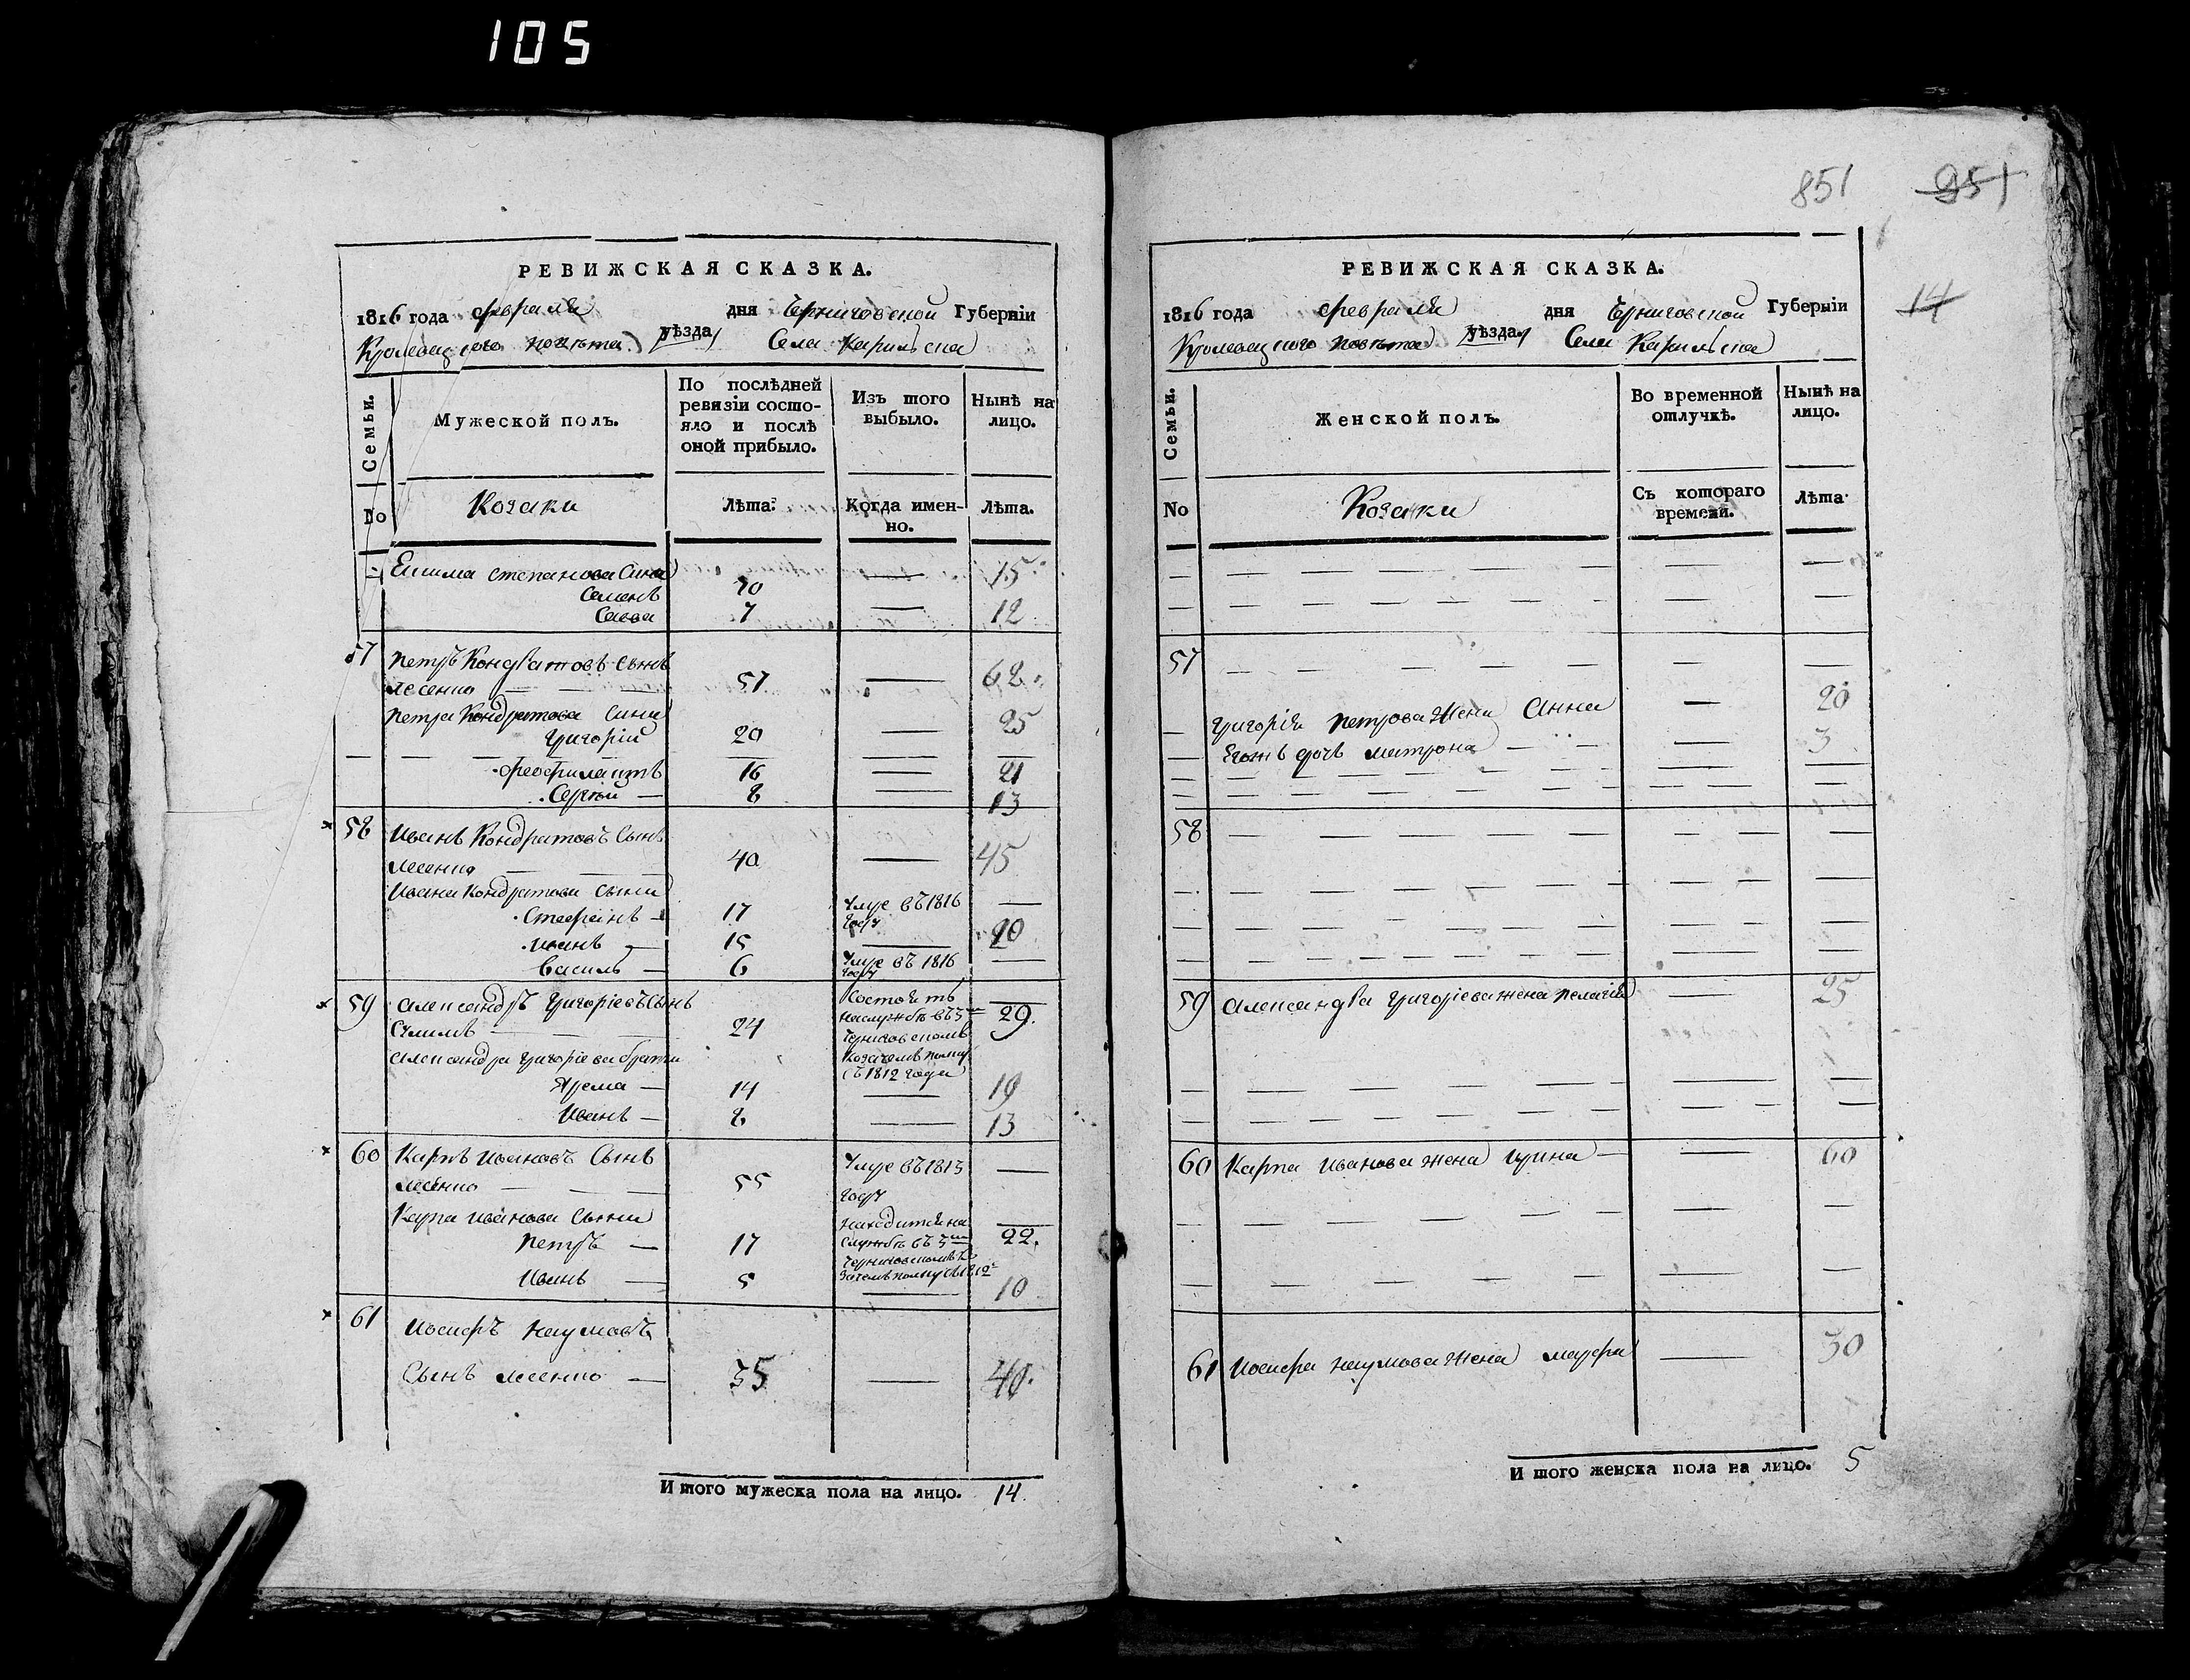 105
РЕВИЖСКАЯ СКАЗКА.
1816 года февраля дня Черниговской Губерніи
Кролевецкого повѣта уѣзда Села Карильска
Семьи.
Мужеской полъ.
По послѣдней ревизіи состо-
яло и послѣ
оной прибыло.
Изъ того
выбыло.
Нынѣ на
лицо.
No
Козаки
Лѣта.
Когда имен-
но.
Лѣта.
Степанова Сина
Семенъ 10 — 15
Савва 7 — 12
57 Петръ Кондратовъ Сынъ
Лесенко — 57 — 62
Петра Кондратова Сини
Григорій 20 — 25
Феофилактъ 16 — 21
Сергѣй — 8 — 13
58 Иванъ Кондратовъ Сынъ
Лесенко — 40 — 45
Ивана Кондратова Сыни
Стефанъ — 17 Умре въ 1816 году —
Иванъ — 15 — 20
Василь — 6 Умре въ 1816 году —
59 Александръ Григоріевъ Сынъ
24 Состоитъ на службѣ въ 3м Черниговскомъ Козачемъ полку съ 1812 года 29.
Александра Григоріева брати
Ярема — 14 — 19
Иванъ — 8 — 13
60 Карпъ Ивановъ Сынъ
Лесенко — 55 Умре въ 1813 году —
Карпа Иванова Сыни
Петръ — 17 находится на службѣ въ 3м 22.
Иванъ — 5 — 10
61 Иосифъ Наумовъ
Сынъ Лесенко — 35 — 40.
И того мужеска пола на лицо. 14.
851 851
14
РЕВИЖСКАЯ СКАЗКА.
1816 года февраля дня Черниговской Губерніи
Кролевецкого повѣта уѣзда Села Карильска
Семьи.
Женской полъ.
Во временной
отлучкѣ.
Нынѣ на
лицо.
No
Козаки
Съ котораго
времени.
Лѣта
57
Григорія Петрова Жена Анна — 20
Егожъ дочь Матрона — 3
58
59 Александра Григоріева жена Пелагія — 25
60 Карпа Иванова жена Ирина — 60
61 Иосифа Наумова Жена Марфа — 30
И того женска пола на лицо. 5